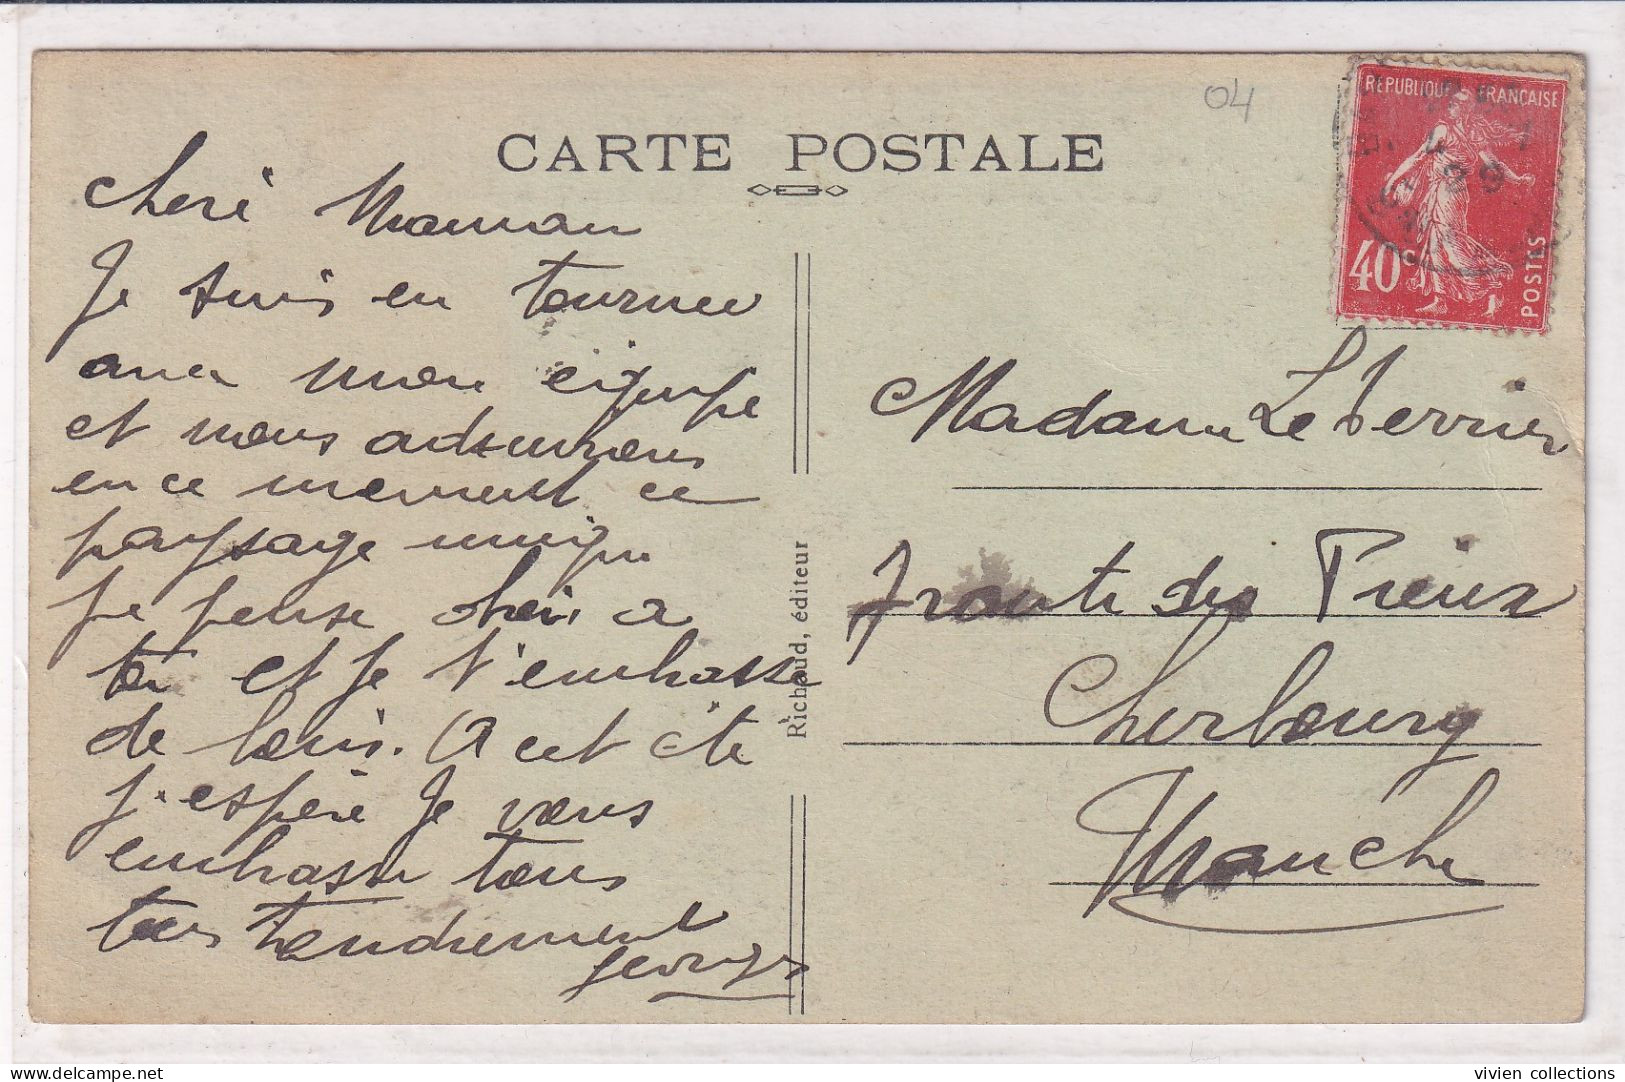 04
CARTE POSTALE
REPUBLIQUE FRANÇAISE
40c
POSTES
cheré Maman
Je suis en tournee
avec mon équipe
et nous admirons
en ce moment ce
paysage unique
Je pense à
toi et je t'embrasse
de loin. A cet été
j'espère Je vous
embrasse tous
tres tendrement
Georges
Richaud, éditeur
Madame Le Verrier
route des Pieux
Cherbourg
Manche
vivien collections